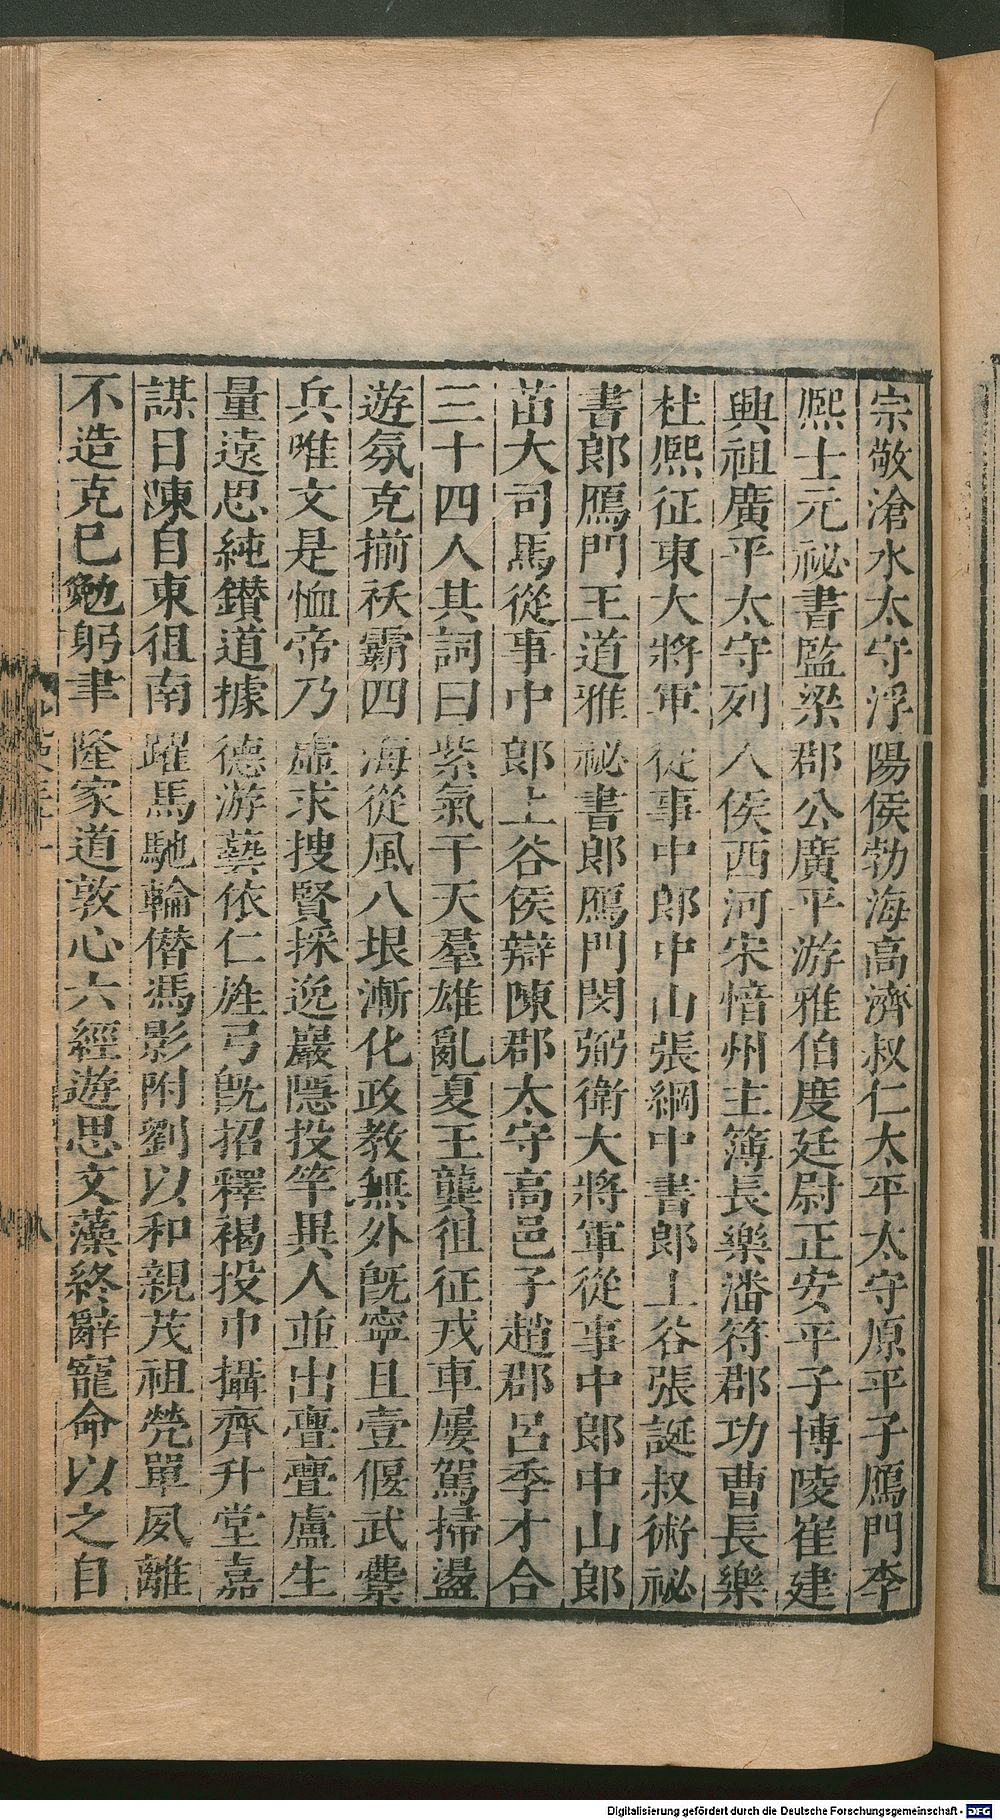 宗敬滄水太守浮陽侯勃海高濟叔仁太平太守原平子鴈門李
熙士元祕書監梁郡公廣平游雅伯度廷尉正安平子博陵崔建
興祖廣平太守列人侯西河宋愔州主簿長樂潘符郡功曹長樂
杜熙征東大將軍從事中郎中山張綱中書郎上谷張誕叔術祕
書郎鴈門王道雅祕書郎鴈門閔弼衛大將軍從事中郎中山郎
苗大司馬從事中郎上谷侯辯陳郡太守高邑子趙郡呂季才合
三十四人其詞曰紫氣干天羣雄亂夏王龔徂征戎車屢駕掃盪
遊氛克揃祅霸四海從風八垠漸化政教無外旣寧且壹偃武櫜
兵唯文是恤帝乃虛求搜賢採逸巖隱投竿異人並出亹亹盧生
量遠思純鑚道據德游藝依仁旌弓旣招釋褐投巾攝齊升堂嘉
謀日陳自東徂南躍馬馳輪僭馮影附劉以和親茂祖煢單夙離
不造克巳勉躬聿隆家道敦心六經遊思文藻終辭寵命以之自
Digitalisierung gefördert durch die Deutsche Forschungsgemeinschaft - DFG